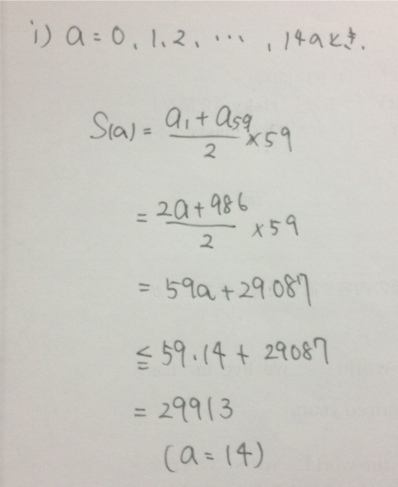 i) a=0,1,2,…,14のとき.
S(a)= (a₁+a₅₉)/2 ×59
= (2a+986)/2 ×59
= 59a+29087
≦ 59・14+29087
= 29913
(a=14)